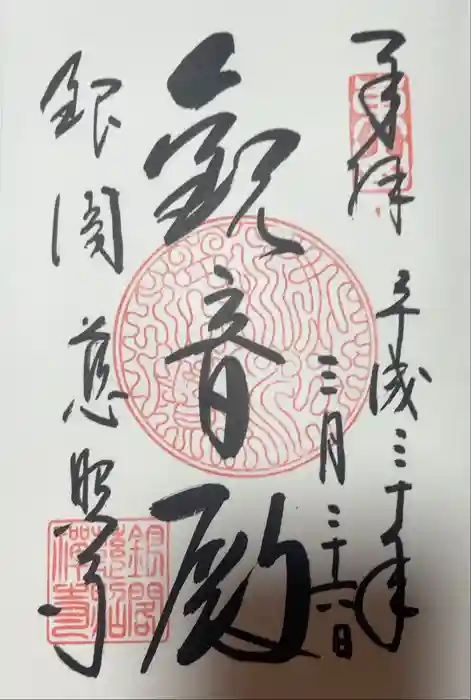 奉拝
平成三十年
三月二十六日
観音殿
銀閣 慈照寺
銀閣
慈照
禅寺